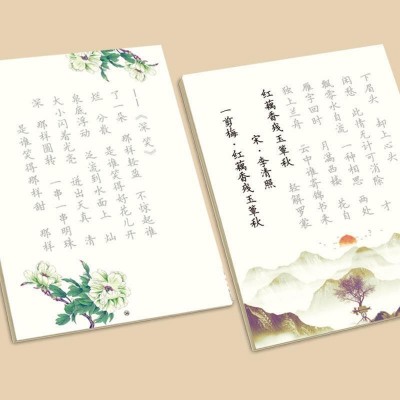 是谁笑得那样甜 那样
深 那样圆转 一串一串明珠
大小闪着光亮 迸出天真 清
泉底浮动 泛流到水面上 灿
烂 分散 是谁笑得好花儿开
了一朵 那样轻盈 不惊起谁
——《深笑》
一剪梅·红藕香残玉簟秋
宋·李清照
红藕香残玉簟秋 轻解罗裳
独上兰舟 云中谁寄锦书来
雁字回时 月满西楼 花自
飘零水自流 一种相思 两处
闲愁 此情无计可消除 才
下眉头 却上心头